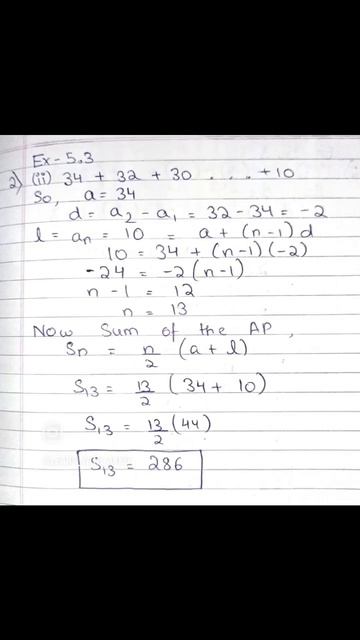 Ex-5.3
2) (ii) 34 + 32 + 30 . . . +10
So, a = 34
d = a₂ - a₁ = 32 - 34 = -2
l = aₙ = 10 = a + (n-1)d
10 = 34 + (n-1)(-2)
-24 = -2(n-1)
n - 1 = 12
n = 13
Now Sum of the AP,
Sₙ = n/2 (a + l)
S₁₃ = 13/2 (34 + 10)
S₁₃ = 13/2 (44)
S₁₃ = 286